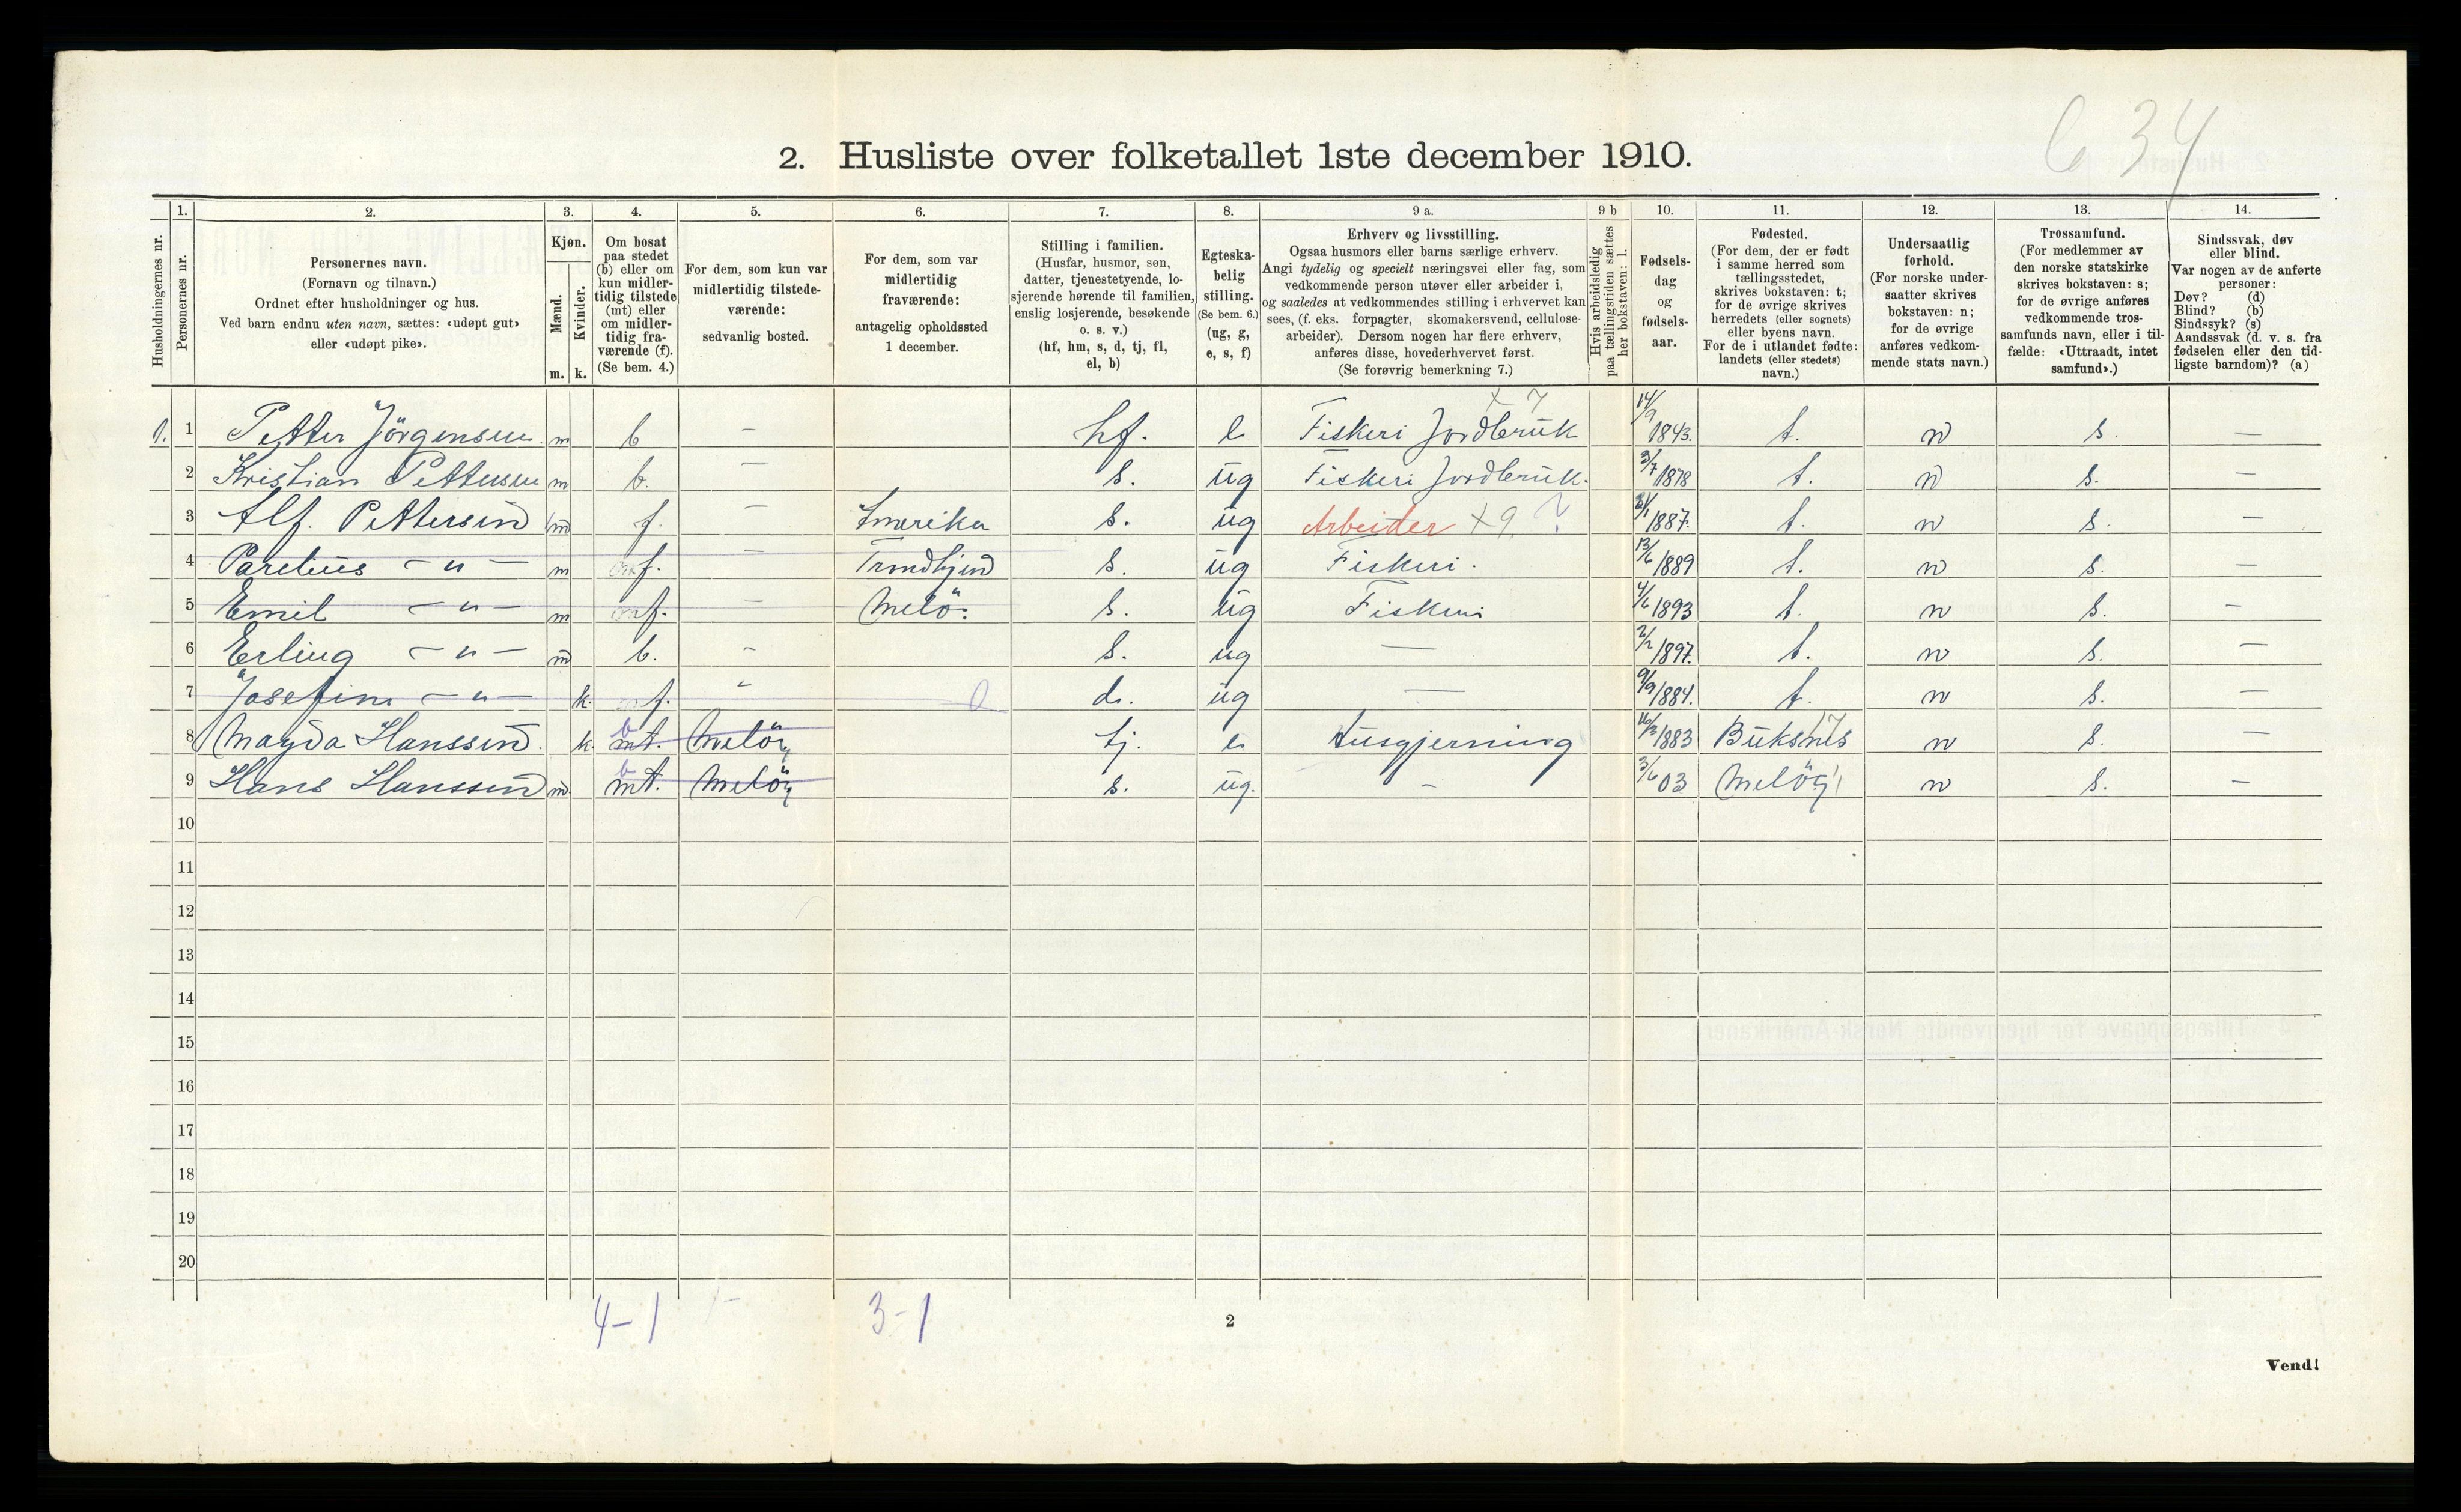 634
2. Husliste over folketallet 1ste december 1910.
Husholdningernes nr.
1. Personernes nr.
2. Personernes navn.
(Fornavn og tilnavn.)
Ordnet efter husholdninger og hus.
Ved barn endnu uten navn, sættes: «udøpt gut»
eller «udøpt pike».
3. Kjøn.
Mænd. Kvinder.
m. k.
4. Om bosat
paa stedet
(b) eller om
kun midler-
tidig tilstede
(mt) eller
om midler-
tidig fra-
værende (f).
(Se bem. 4.)
5. For dem, som kun var
midlertidig tilstede-
værende:
sedvanlig bosted.
6. For dem, som var
midlertidig
fraværende:
antagelig opholdssted
1 december.
7. Stilling i familien.
(Husfar, husmor, søn,
datter, tjenestetyende, lo-
sjerende hørende til familien,
enslig losjerende, besøkende
o. s. v.)
(hf, hm, s, d, tj, fl,
el, b)
8. Egteska-
belig
stilling.
(Se bem. 6.)
(ug, g,
e, s, f)
9 a. Erhverv og livsstilling.
Ogsaa husmors eller barns særlige erhverv.
Angi tydelig og specielt næringsvei eller fag, som
vedkommende person utøver eller arbeider i,
og saaledes at vedkommendes stilling i erhvervet kan
sees, (f. eks. forpagter, skomakersvend, cellulose-
arbeider). Dersom nogen har flere erhverv,
anføres disse, hovederhvervet først.
(Se forøvrig bemerkning 7.)
9 b Hvis arbeidsledig
paa tællingstiden sættes
her bokstaven: l.
10. Fødsels-
dag
og
fødsels-
aar.
11. Fødested.
(For dem, der er født
i samme herred som
tællingsstedet,
skrives bokstaven: t;
for de øvrige skrives
herredets (eller sognets)
eller byens navn.
For de i utlandet fødte:
landets (eller stedets)
navn.)
12. Undersaatlig
forhold.
(For norske under-
saatter skrives
bokstaven: n;
for de øvrige
anføres vedkom-
mende stats navn.)
13. Trossamfund.
(For medlemmer av
den norske statskirke
skrives bokstaven: s;
for de øvrige anføres
vedkommende tros-
samfunds navn, eller i til-
fælde: «Uttraadt, intet
samfund».)
14. Sindssvak, døv
eller blind.
Var nogen av de anførte
personer:
Døv? (d)
Blind? (b)
Sindssyk? (s)
Aandssvak (d. v. s. fra
fødselen eller den tid-
ligste barndom)? (a)
1. 1 Petter Jörgensen m b — hf. e Fiskeri Jordbruk x 7 14/9 1843. t. n s. —
2 Kristian Pettersen m b. — s. ug Fiskeri Jordbruk. 3/7 1878 t. n s. —
3 Alf. Pettersen m f. — Amerika s. ug Arbeider x9 ? 1887. t. n s. —
4 Parelius — " — m f. — Trondhjem s. ug Fiskeri. 13/6 1889 t. n s. —
5 Emil — " — m f. — Melö. s. ug Fiskeri 4/6 1893 t. n s. —
6 Erling — " — m b. - s. ug — 2/2 1897. t. n s. —
7 Josefine — " — k. f. - d. ug — 9/9 1884. t. n s. —
8 Magda Hanssen. k. b mt. Melöy tj. e Husgjerning 1883 Buksnes n s. —
9 Hans Hanssen m b mt. Melöy s. ug. - 3/6 03 Melöy n s. —
10
11
12
13
14
15
16
17
18
19
20
4-1 1- 3-1
2
Vend!